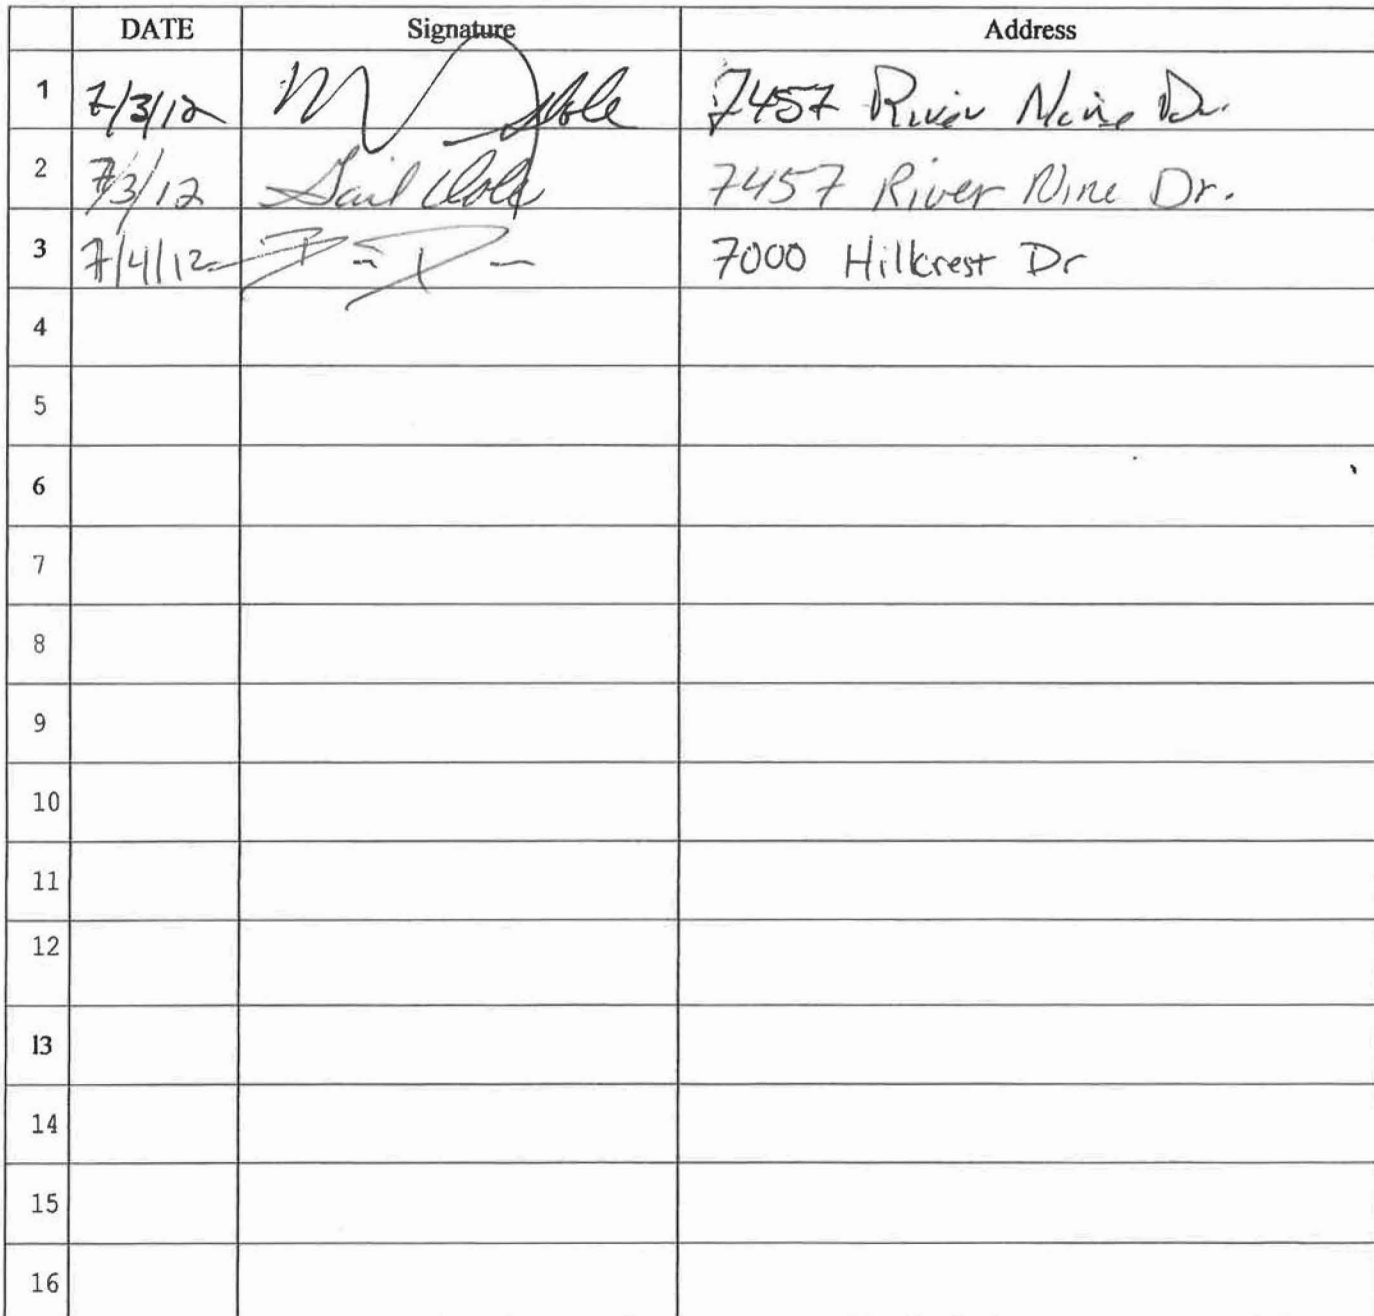 DATE Signature Address
1 7/3/12 7457 River Nine Dr.
2 7/3/12 Gail Dole 7457 River Nine Dr.
3 7/4/12 7000 Hillcrest Dr
4
5
6
7
8
9
10
11
12
13
14
15
16